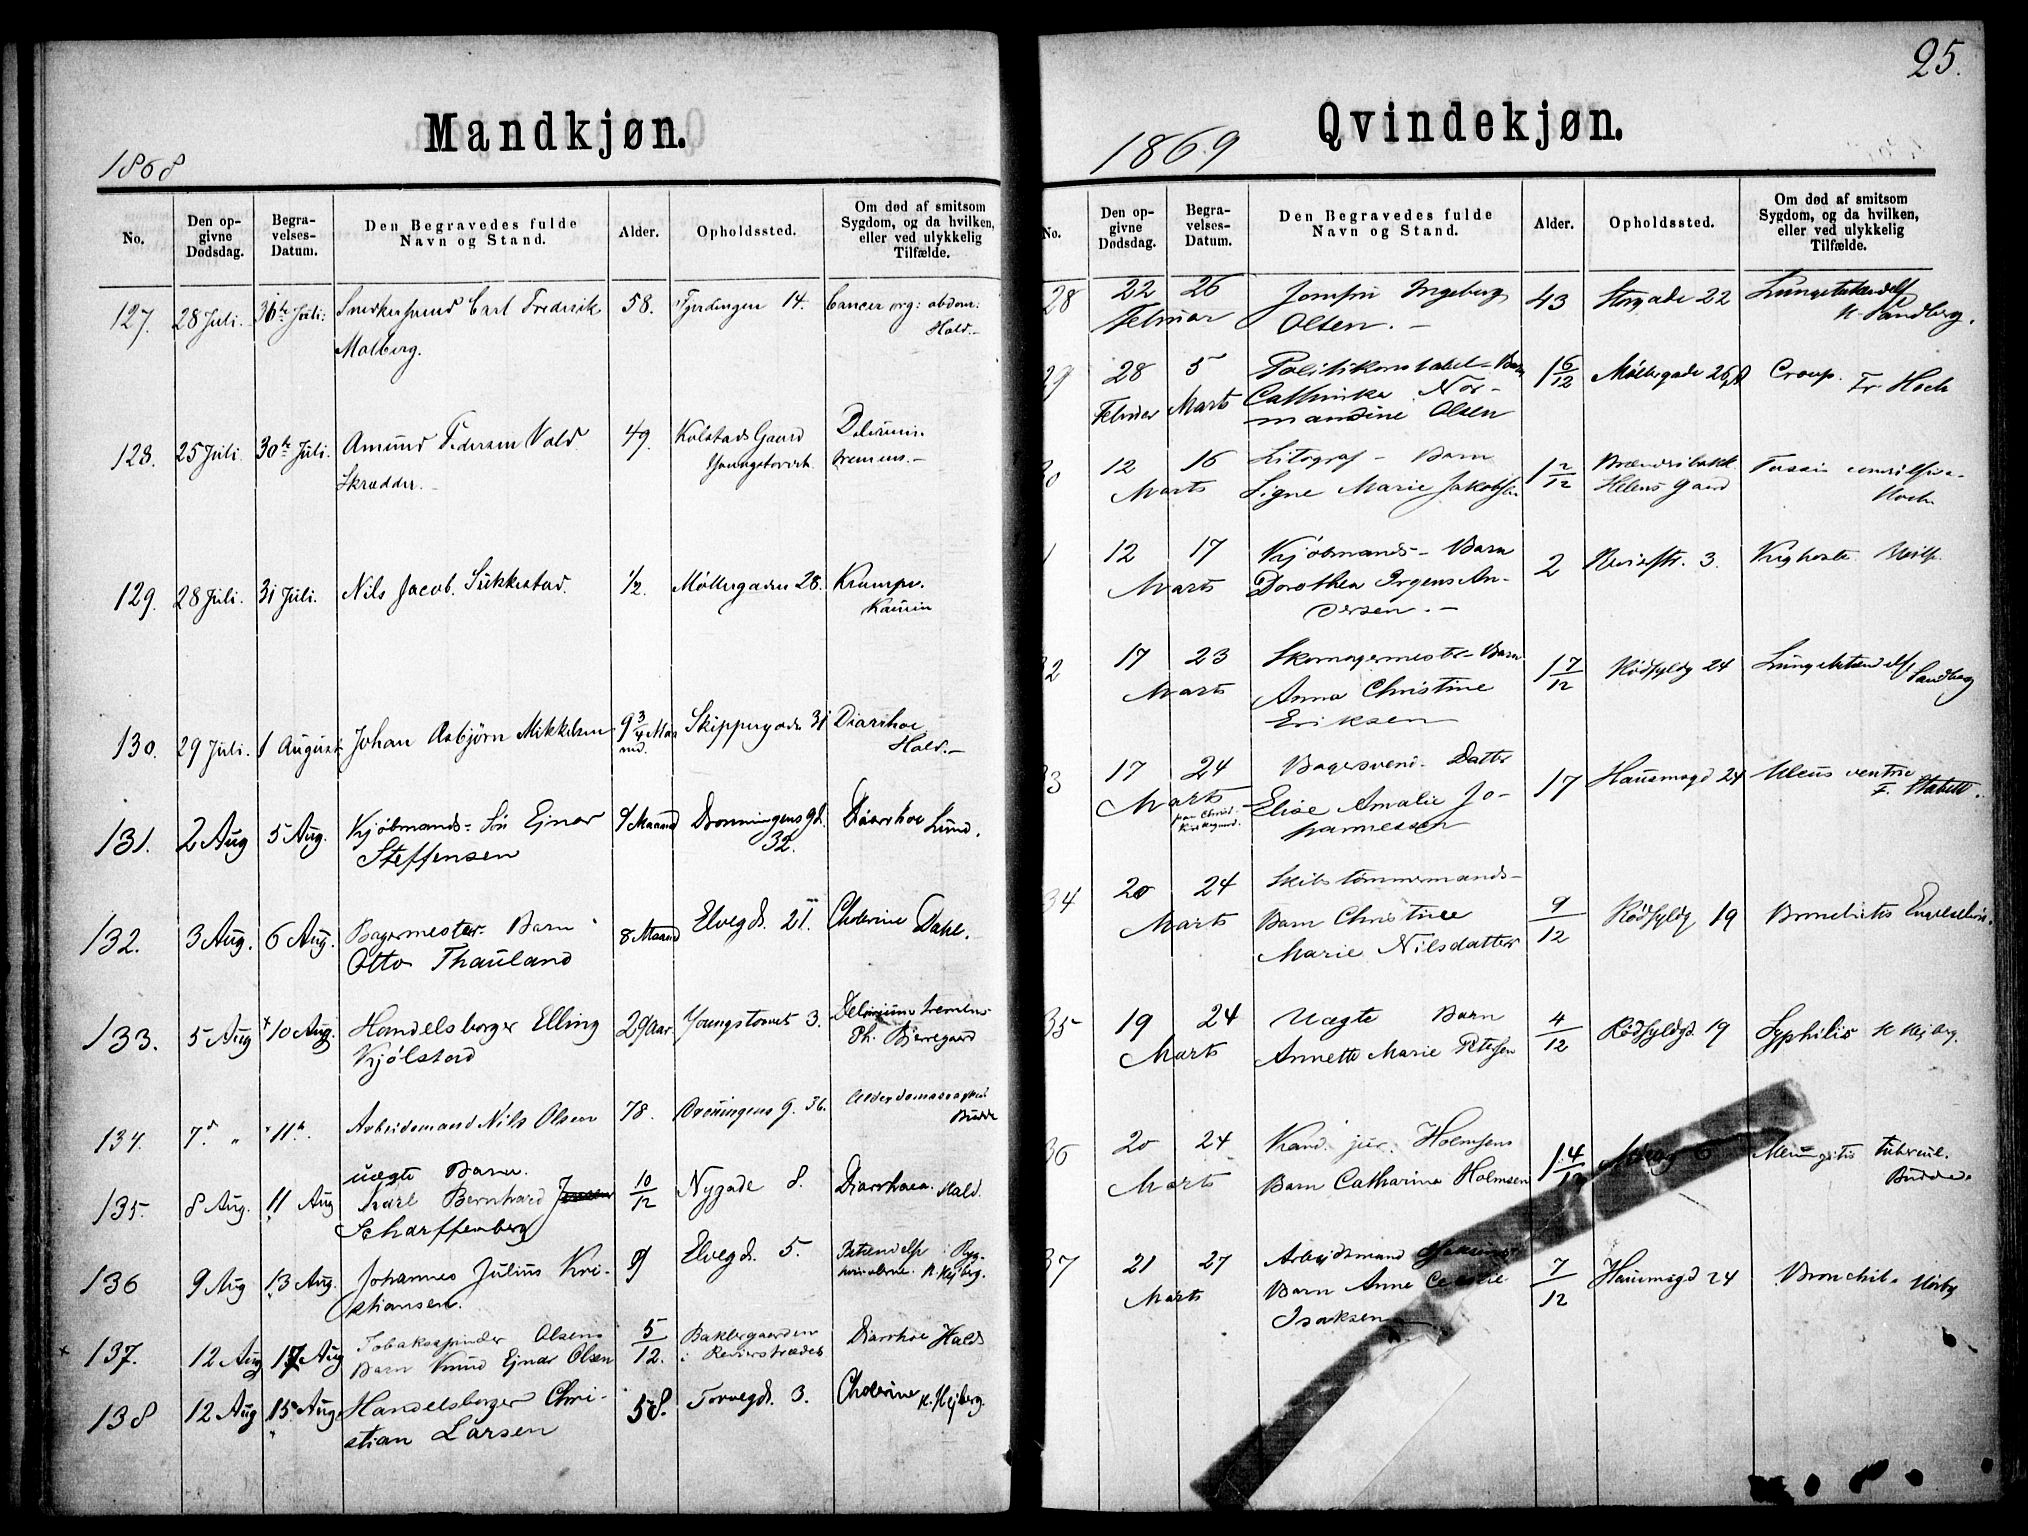 25.
Mandkjøn.
1868
No.
Den op-
givne
Dødsdag.
Begra-
velses-
Datum.
Den Begravedes fulde
Navn og Stand.
Alder.
Opholdssted.
Om død af smitsom
Sygdom, og da hvilken,
eller ved ulykkelig
Tilfælde.
127. 28 Juli. Juli. Carl Frederik 58. Fjerdingen 14. Cancer org: abdom:
Malberg. Hald.
128. 25 Juli. 30te Juli. Amund Pedersen Vold 49. Kolstads Gaard Delirium
Skrædder. Youngstorvet tremens.
129. 28 Juli. 31 Juli. Nils Jacob Sukkestad. 1/2. Møllergaden 28. Krampe.
130. 29 Juli. 1 August Johan Asbjørn Mikkelsen 9 3/4 Maa Skippergade 31 Diarrhoe
ned. Hald.
131. 2 Aug 5 Aug. Kjøbmands- Søn Ejnar 9 Maaned Dronningens gd. Diarrhoe Lund.
Steffensen 32.
132. 3 Aug. 6 Aug. Bagermester Barn 8 Maaned Elvegd. 21. Cholerine Dahl.
Otto Thauland
133. 5 Aug 10 Aug. Handelsborger Elling 29 Aar. Youngstorvet 3. Delirium tremens
Kjølstad Ph. Bjerregaard
134. 7. " 11 " Arbeidsmand Nils Olsen 78. Dronningens G. 36. Alderdomssvaghed
Budde
uægte Barn
135. 8 Aug. 11 Aug Karl Bernhard 10/12 Nygade 8. Diarrhoea. Hald.
Scharffenberg
136 9 Aug 13 Aug. Johannes Julius Kri- 9 Elvegd. 5. Betændelse i Ryg-
stiansen. K. Hejberg.
137. 12 Aug 17 Aug Tobaksspinder Olsens 5/12. Baklergaarden Diarrhoe Hald
Barn Knud Ejnar Olsen i Revierstrædet
138 12 Aug 15 Aug. Handelsborger Chri- 58. Torvegd. 3. Cholerine K. Hejberg.
stian Larsen
Qvindekjøn.
1869
No.
Den op-
givne
Dødsdag.
Begra-
velses-
Datum.
Den Begravedes fulde
Navn og Stand.
Alder.
Opholdssted.
Om død af smitsom
Sygdom, og da hvilken,
eller ved ulykkelig
Tilfælde.
28 22 26 Jomfru Ingeborg 43 Storgade 22 Lungebetændelse
Februar Olsen. Sandberg.
29 28 5 Politikonstabel- Barn 1 6/12 Møllergade 26 Croup.
Februar Marts Cathinka Nor- Fr. Hoch
mandine Olsen
30 12 16 Litograf- Barn 1 2/12 Tussis
Marts Signe Marie Jakobsen Helens Gaard Hoch
12 17 Kjøbmands- Barn 2 Revierstr. 3. Kighoste
Marts Dorothea Irgens An-
dersen.
32 17 23 Skomagermester- Barn 1 7/12 Rødfyldg 24 Lungebetændelse
Marts Anna Christine Sandberg
Eriksen
33 17 24 Bagersvend- Datter 17 Hausmagd 24 Ulcus ventric
Marts Elise Amalie Jo-
paa Christ. hannessen
Kirkegaard.
34 20 24 Skibstømmermands- 9/12 Rødfyldg 19 Bronchitis
Marts Barn Christine
Marie Nilsdatter
35 19 24 Uægte Barn 4/12 Rødfyldgd. 19 Syphilis K Hejberg.
Marts Annette Marie Petersen
36 20 24 Kand. jur. Holmsens 1 4/12 Meningitis tubercul.
Marts Barn Catharina Holmsen Budde.
37 21 27 Arbejdsmand 7/12 Hausmagd 24 Bronchit.
Marts Barn Anne Cecilie
Isaksen